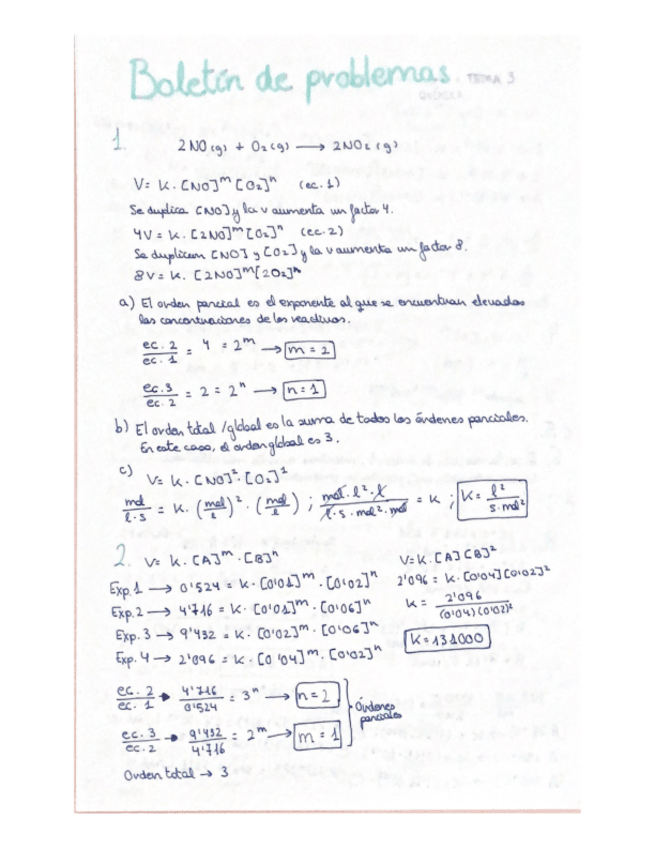 Boletín de problemas. TEMA 3
QUÍMICA
1. 2 NO (g) + O2 (g) ⟶ 2NO2 (g)
V = K · [NO]^m [O2]^n (ec. 1)
Se duplica [NO] y la v aumenta un factor 4.
4V = K. [2NO]^m [O2]^n (ec. 2)
Se duplican [NO] y [O2] y la v aumenta un factor 8.
8V = K. [2NO]^m [2O2]^n
a) El orden parcial es el exponente al que se encuentran elevadas
las concentraciones de los reactivos.
ec. 2 / ec. 1 = 4 = 2^m → m = 2
ec. 3 / ec. 2 = 2 = 2^n → n = 1
b) El orden total / global es la suma de todos los órdenes parciales.
En este caso, el orden global es 3.
c) V = K. [NO]^2 · [O2]^1
mol / l·s = K. (mol / l)^2 · (mol / l) ; mol · l^2 · l / l · s · mol^2 · mol = K ; K = l^2 / s · mol^2
2. V = K. [A]^m · [B]^n
Exp. 1 → 0'524 = K · [0'01]^m · [0'02]^n
Exp. 2 → 4'716 = K · [0'01]^m · [0'06]^n
Exp. 3 → 9'432 = K · [0'02]^m · [0'06]^n
Exp. 4 → 2'096 = K · [0'04]^m · [0'02]^n
V = K · [A] [B]^2
2'096 = K · [0'04] [0'02]^2
K = 2'096 / (0'04) (0'02)^2
K = 131000
ec. 2 / ec. 1 → 4'716 / 0'524 = 3^n → n = 2
ec. 3 / ec. 2 → 9'432 / 4'716 = 2^m → m = 1
Órdenes
parciales
Orden total → 3